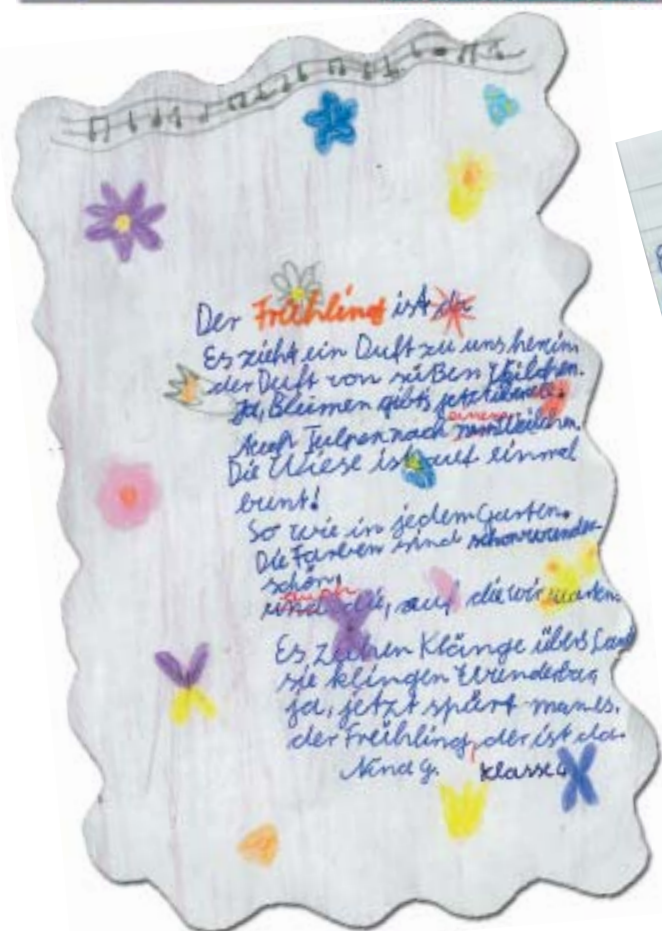 Der Frühling ist da
Es zieht ein Duft zu uns herein,
der Duft von süßen Veilchen.
Ja, Blumen gibts jetzt überall.
Auch Tulpen nach
einem
Die Wiese ist auf einmal
bunt!
So wie in jedem Garten.
Die Farben sind schon wunder-
schön,
auch
und die, auf die wir warten.
Es ziehen Klänge übers Land
sie klingen wunderbar,
ja, jetzt spürt man es,
der Frühling, der ist da.
Nina G. Klasse